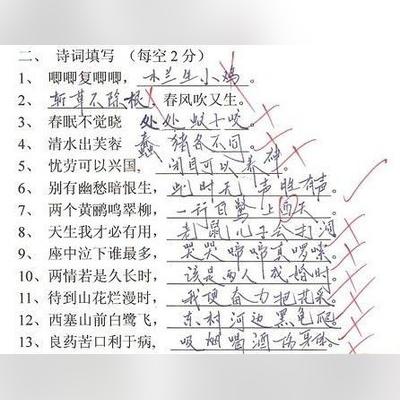 二、诗词填写（每空2分）
1、唧唧复唧唧，木兰生小鸡。
2、斩草不除根，春风吹又生。
3、春眠不觉晓 处处蚊子咬。
4、清水出芙蓉 蠢猪各不同。
5、忧劳可以兴国，闭目可以养神。
6、别有幽愁暗恨生，此时无声胜有声
7、两个黄鹂鸣翠柳，一行白鹭上西天
8、天生我才必有用，老鼠儿子会打洞
9、座中泣下谁最多，哭哭啼啼真啰嗦
10、两情若是久长时，该是两人成婚时。
11、待到山花烂漫时，我便奋力把花采。
12、西塞山前白鹭飞，东村河边黑龟爬。
13、良药苦口利于病，吸烟喝酒伤身体。